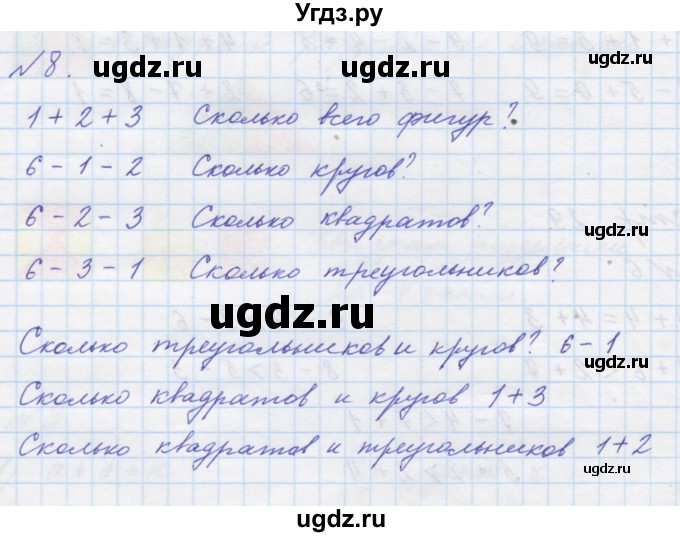 Угдз.ру
ugdz.ru ugdz.ru ugdz.ru
№8.
1 + 2 + 3 Сколько всего фигур?
ugdz.ru
6 - 1 - 2 Сколько кругов?
ugdz.ru
6 - 2 - 3 Сколько квадратов?
ugdz.ru
6 - 3 - 1 Сколько треугольников?
ugdz.ru
Сколько треугольников и кругов? 6 - 1
ugdz.ru
Сколько квадратов и кругов 1 + 3
Сколько квадратов и треугольников 1 + 2
ugdz.ru
ugdz.ru ugdz.ru
ugdz.ru